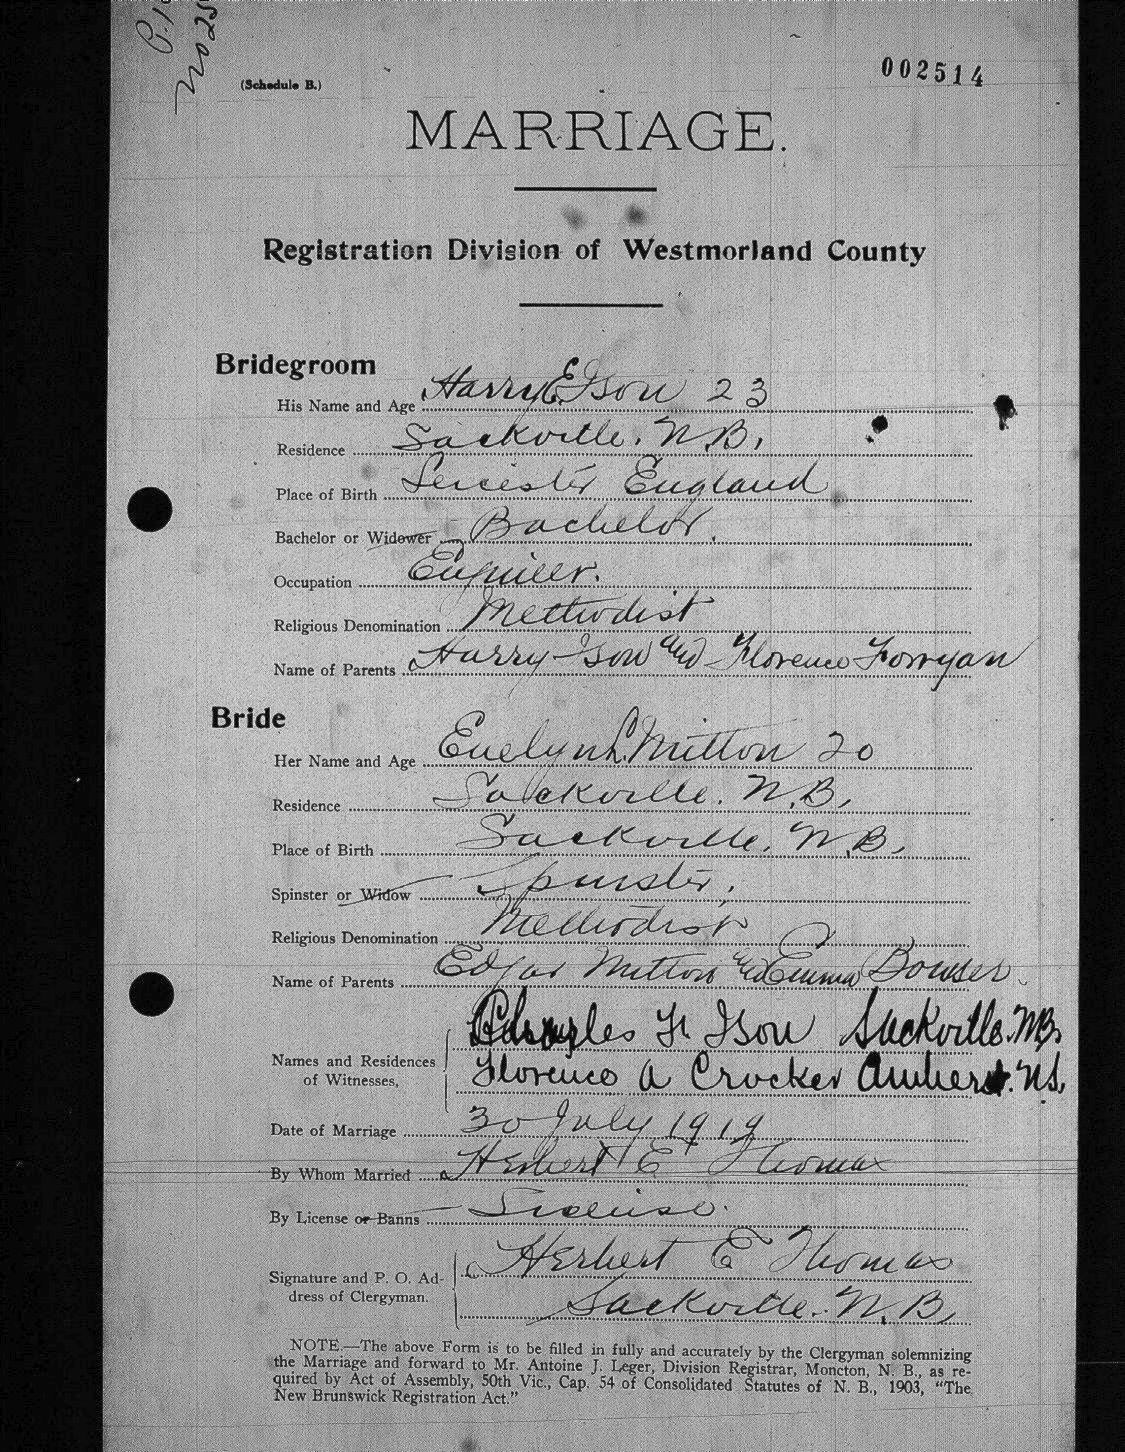 (Schedule B.)
002514
MARRIAGE.
Registration Division of Westmorland County
Bridegroom
His Name and Age Harry E Ison 23
Residence Sackville. N.B.
Place of Birth Leicester England
Bachelor or Widower Bachelor.
Occupation Engineer.
Religious Denomination Methodist
Name of Parents Harry Ison and Florence Forryan
Bride
Her Name and Age Evelyn L. Mitton 20
Residence Sackville. N.B.
Place of Birth Sackville. N.B.
Spinster or Widow Spinster.
Religious Denomination Methodist
Name of Parents Edgar Mitton and Emma Bowser.
Charles F. Ison Sackville. N.B.
Names and Residences
of Witnesses,
Florence A Crocker Amherst. N.S.
Date of Marriage 30 July 1919
By Whom Married Herbert E Thomas
By License or Banns License.
Herbert E Thomas
Signature and P. O. Ad-
dress of Clergyman.
Sackville. N.B.
NOTE.—The above Form is to be filled in fully and accurately by the Clergyman solemnizing
the Marriage and forward to Mr. Antoine J. Leger, Division Registrar, Moncton, N. B., as re-
quired by Act of Assembly, 50th Vic., Cap. 54 of Consolidated Statutes of N. B., 1903, “The
New Brunswick Registration Act.”